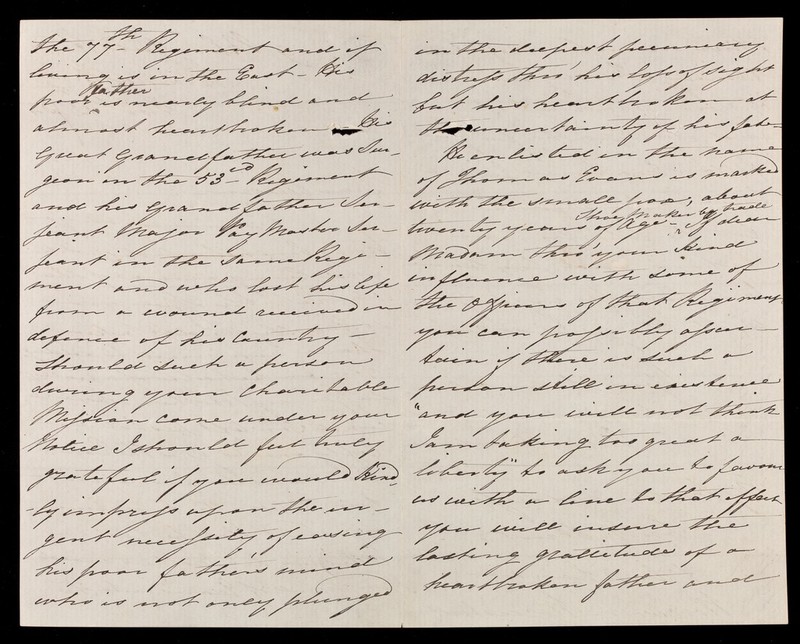 the 77th Regiment and if
living is in the East - His
poor father is nearly blind and
almost heartbroken - His
Great Grandfather was Sur-
geon in the 53rd Regiment
and his Grandfather Ser-
jeant Major Pay Master Ser-
jeant in the same Regi-
ment and who lost his life
from a wound received in
defence of his Country -
Should such a person
during your Charitable
Mission come under your
Notice I should feel truly
grateful if you would Kind-
-ly impress upon the ur-
gent necessity of easing
his poor father's mind
who is not only plunged
in the deepest pecuniary
distress thro' his loss of sight
but his heart broken at
the uncertainty of his fate -
He enlisted in the name
of Thomas Evans is marked
with the small pox, about
twenty years of Age - Shoe Maker by trade If dear
Madam thro' your Kind
influence with some of
the Officers of that Regiment
you can possibly ascer-
tain if there is such a
person still in existence
"and you will not think
I am taking too great a
liberty" to ask you to favour
us with a line to that effect
you will insure the
lasting gratitude of a
heartbroken father and